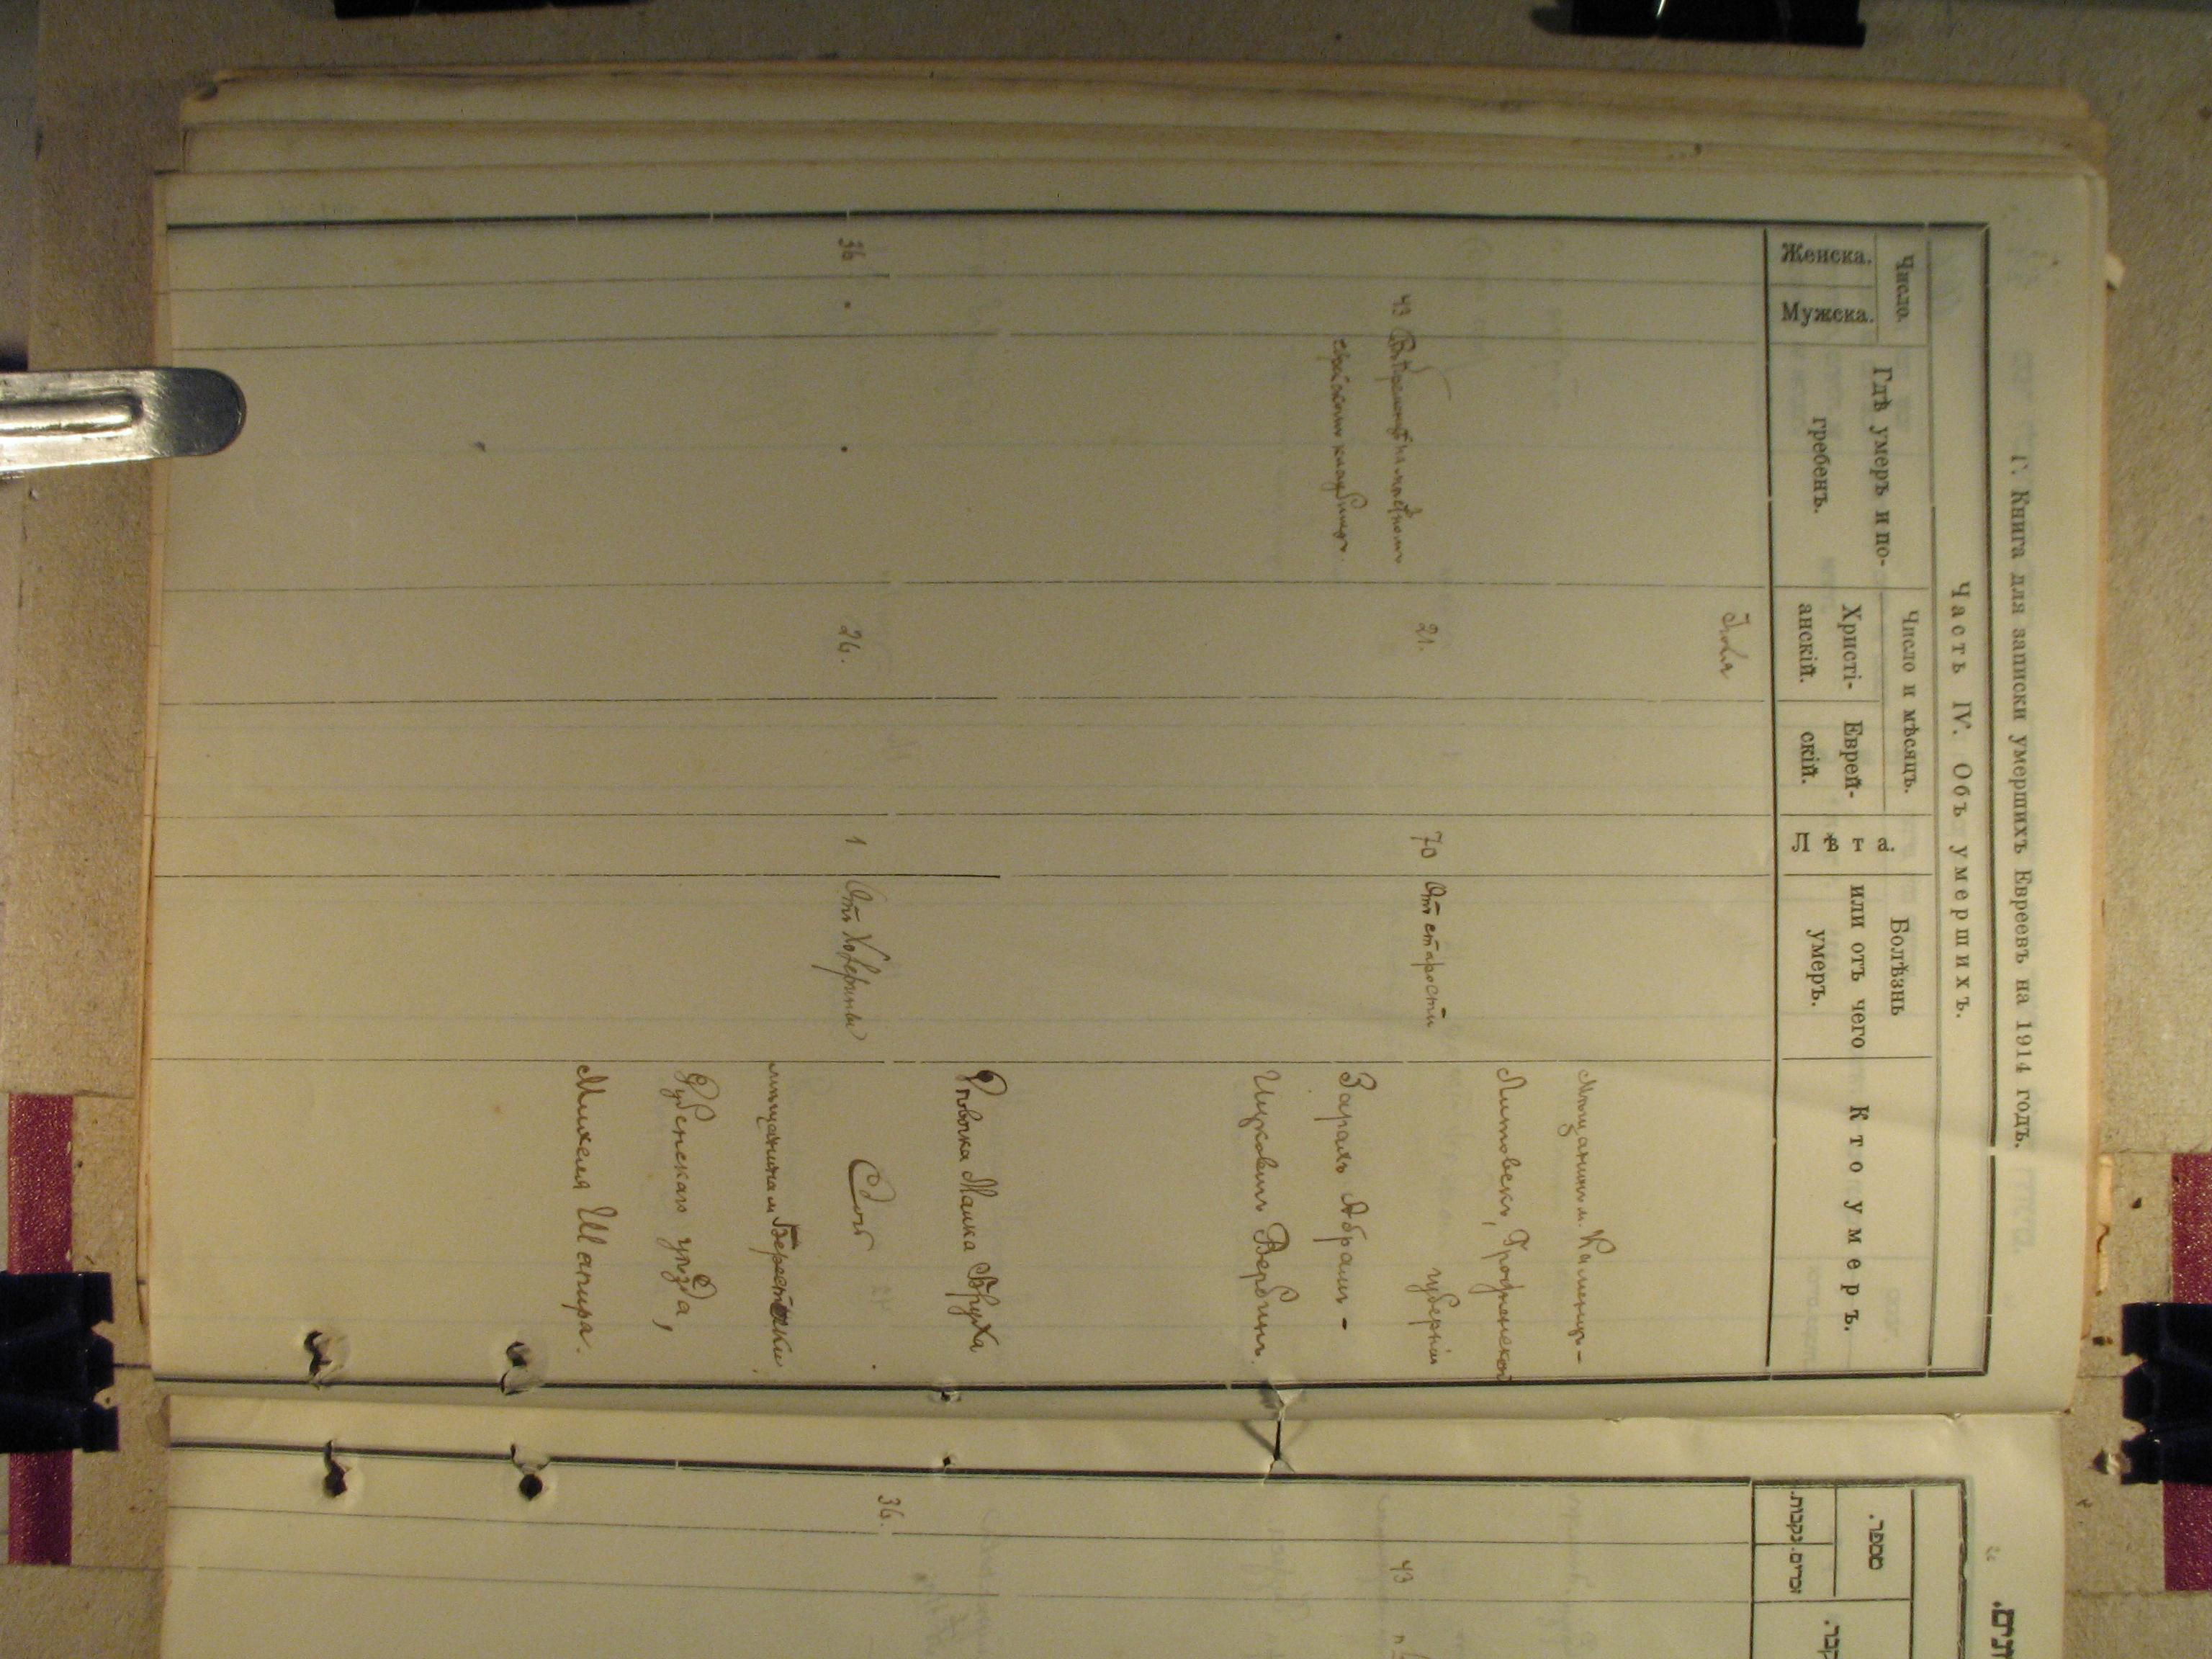 Г. Книга для записки умершихъ Евреевъ на 1914 годъ.
Часть IV. Объ умершихъ.
Число.
Женска.
Мужска.
Гдѣ умеръ и по-
гребенъ.
Число и мѣсяцъ.
Христі-
анскій.
Еврей-
скій.
Лѣта.
Болѣзнь
или отъ чего
умеръ.
Кто умеръ.
Іюля
43
еврейскомъ кладбищѣ.
21.
70
Отъ старости
Мѣщанинъ м. Каменец-
Литовскъ, Гродненской
губерніи
Зарахъ Абрамъ-
Ицковичъ Вербинъ.
36
26.
1
Отъ Холерины
Дѣвочка Малка Бруха
Дочь
мѣщанина м. Берестечки,
Дубенскаго уѣзда,
Михеля Шапира.
מספר.
נקבות.
זכרים.
36.
43